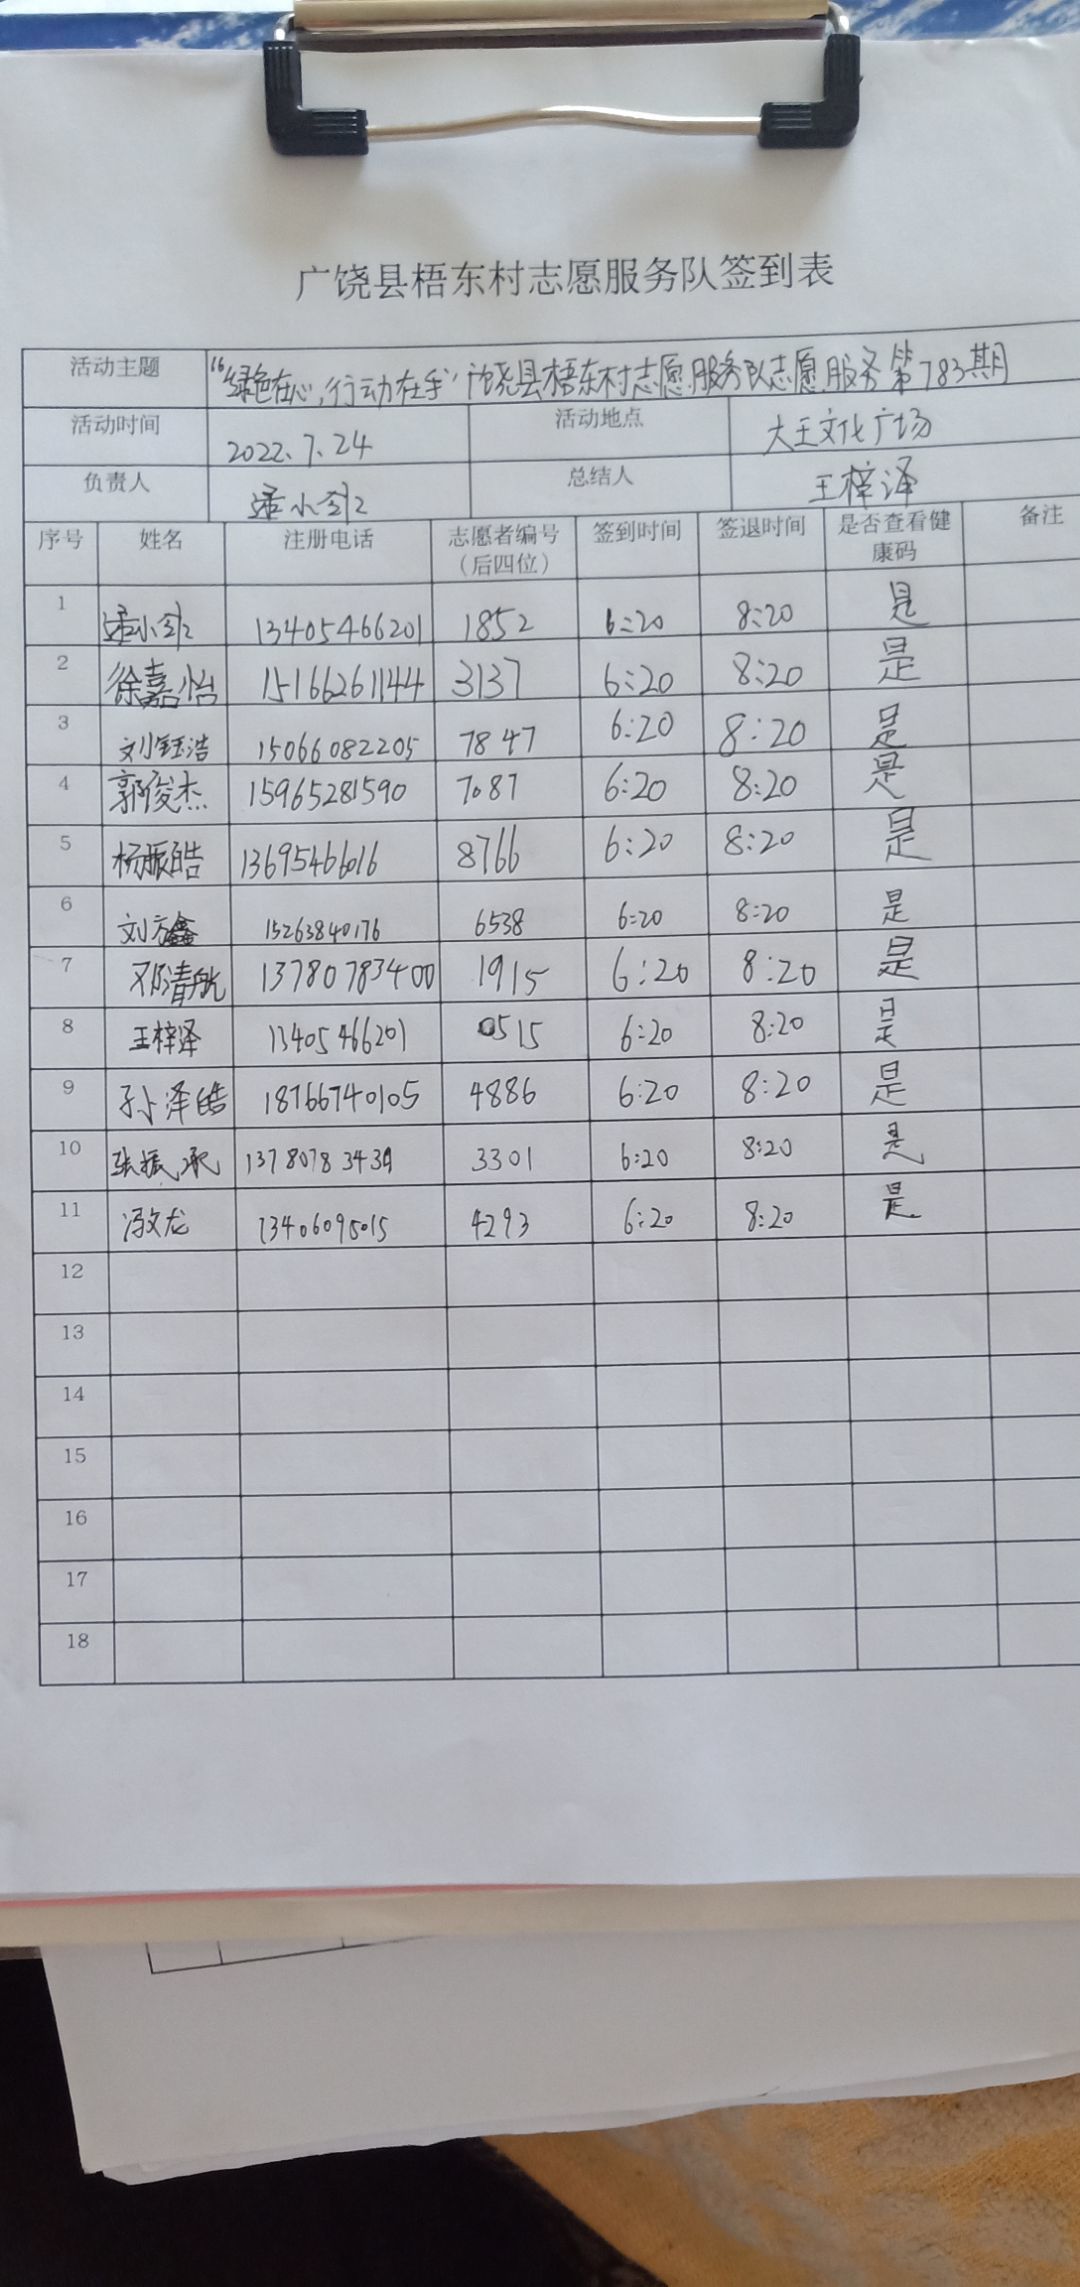 广饶县梧东村志愿服务队签到表
活动主题 “绿色在心，行动在手”广饶县梧东村志愿服务队志愿服务第783期
活动时间 2022.7.24 活动地点 大王文化广场
负责人 小 总结人 王梓泽
序号 姓名 注册电话 志愿者编号（后四位） 签到时间 签退时间 是否查看健康码 备注
1 小 13405466201 1852 6:20 8:20 是
2 徐嘉怡 15166261144 3137 6:20 8:20 是
3 刘钰浩 15066082205 7847 6:20 8:20 是
4 郭俊杰 15965281590 7087 6:20 8:20 是
5 杨振皓 13695466016 8766 6:20 8:20 是
6 刘方鑫 15263840176 6538 6:20 8:20 是
7 邓清航 13780783400 1915 6:20 8:20 是
8 王梓泽 13405466201 0515 6:20 8:20 是
9 孙泽皓 18766740105 4886 6:20 8:20 是
10 张振承 3301 6:20 8:20 是
11 冯文龙 13406095015 4293 6:20 8:20 是
12
13
14
15
16
17
18